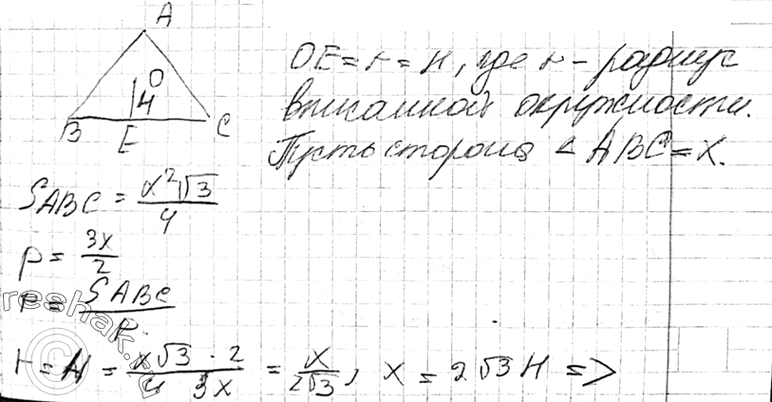 A
O
H
B
E
C
OE = r = H, где r - радиус
вписанной окружности.
Пусть сторона < ABC = x.
S ABC = x²√3 / 4
p = 3x / 2
r = S ABC / p.
reshak.ru
r = H = x√3 · 2 / 4 3x = x / 2√3, x = 2√3 H =>